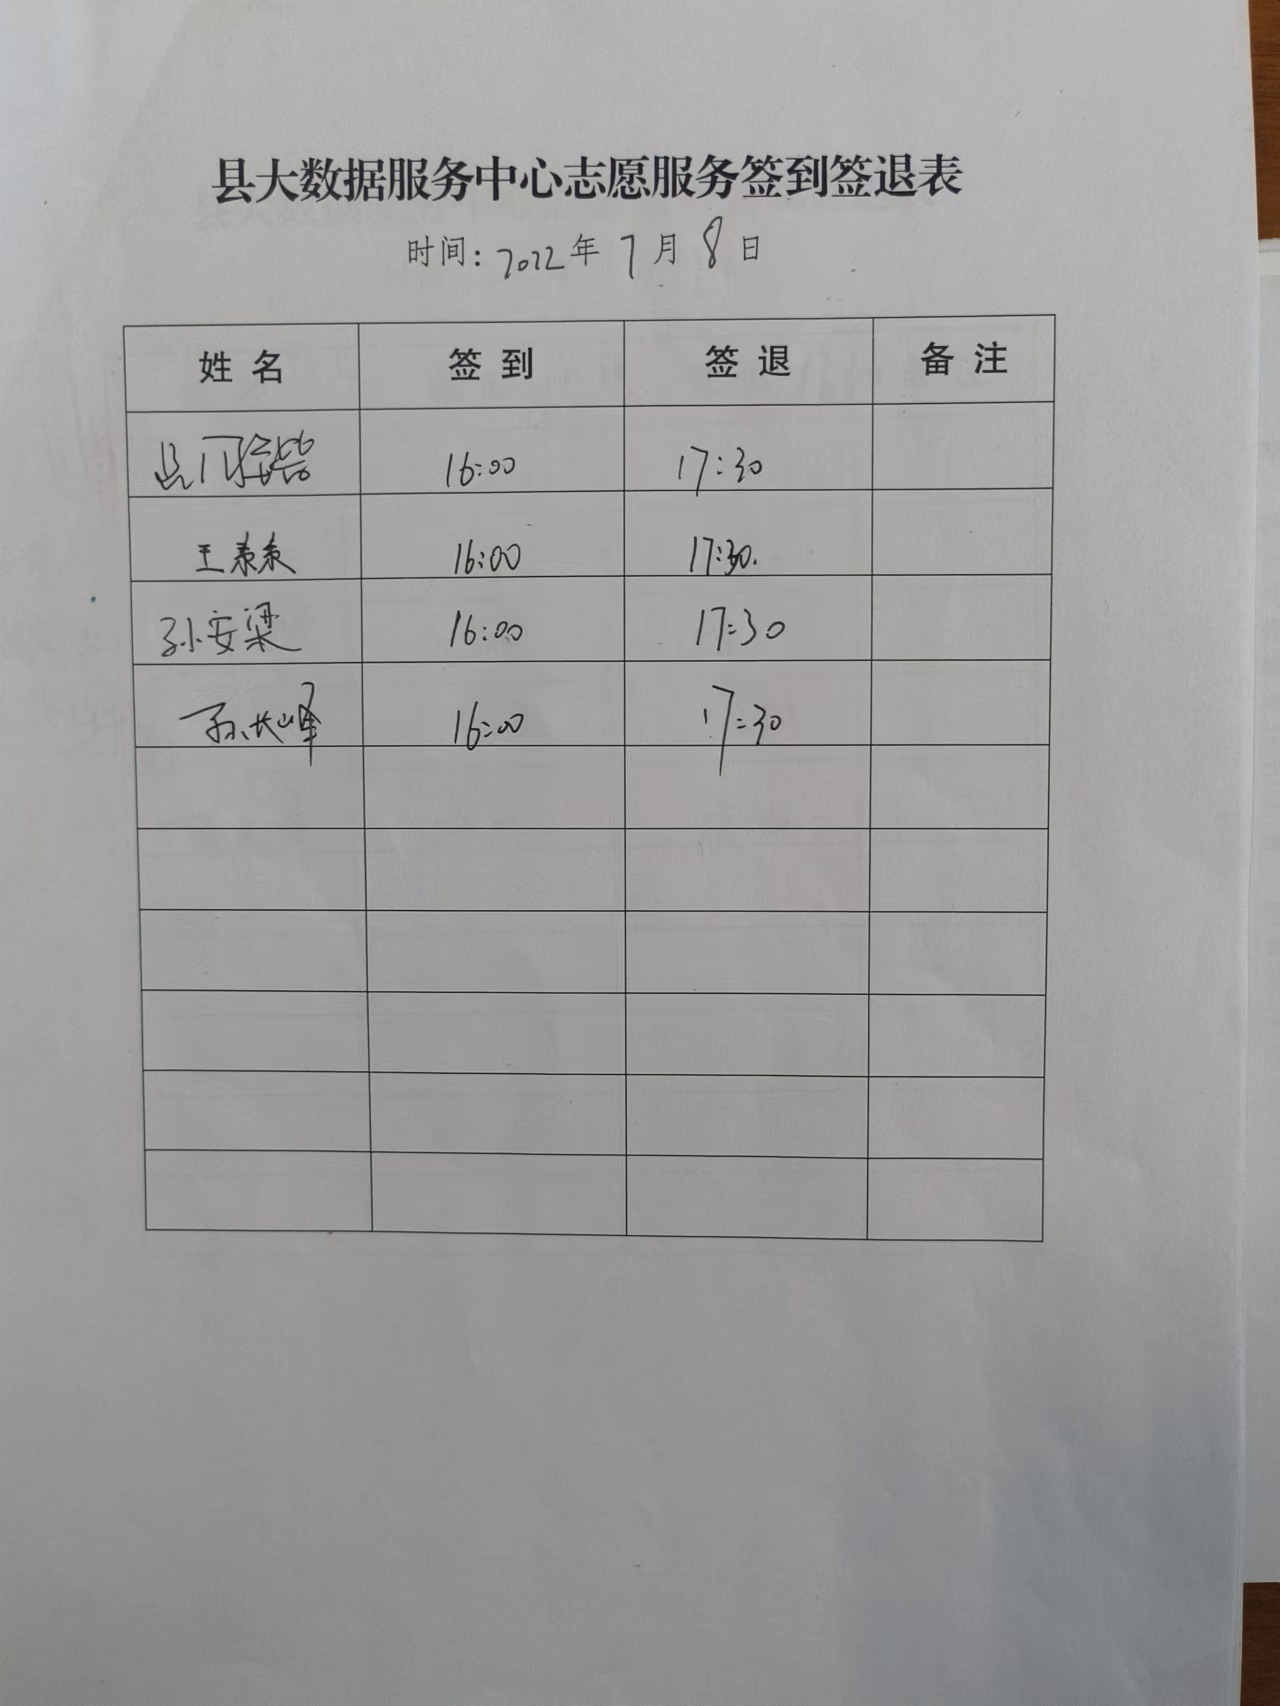 县大数据服务中心志愿服务签到签退表
时间：2022年7月8日
姓名 签到 签退 备注
16:00 17:30
王森森 16:00 17:30.
孙安梁 16:00 17:30
孙长峰 16:00 17:30